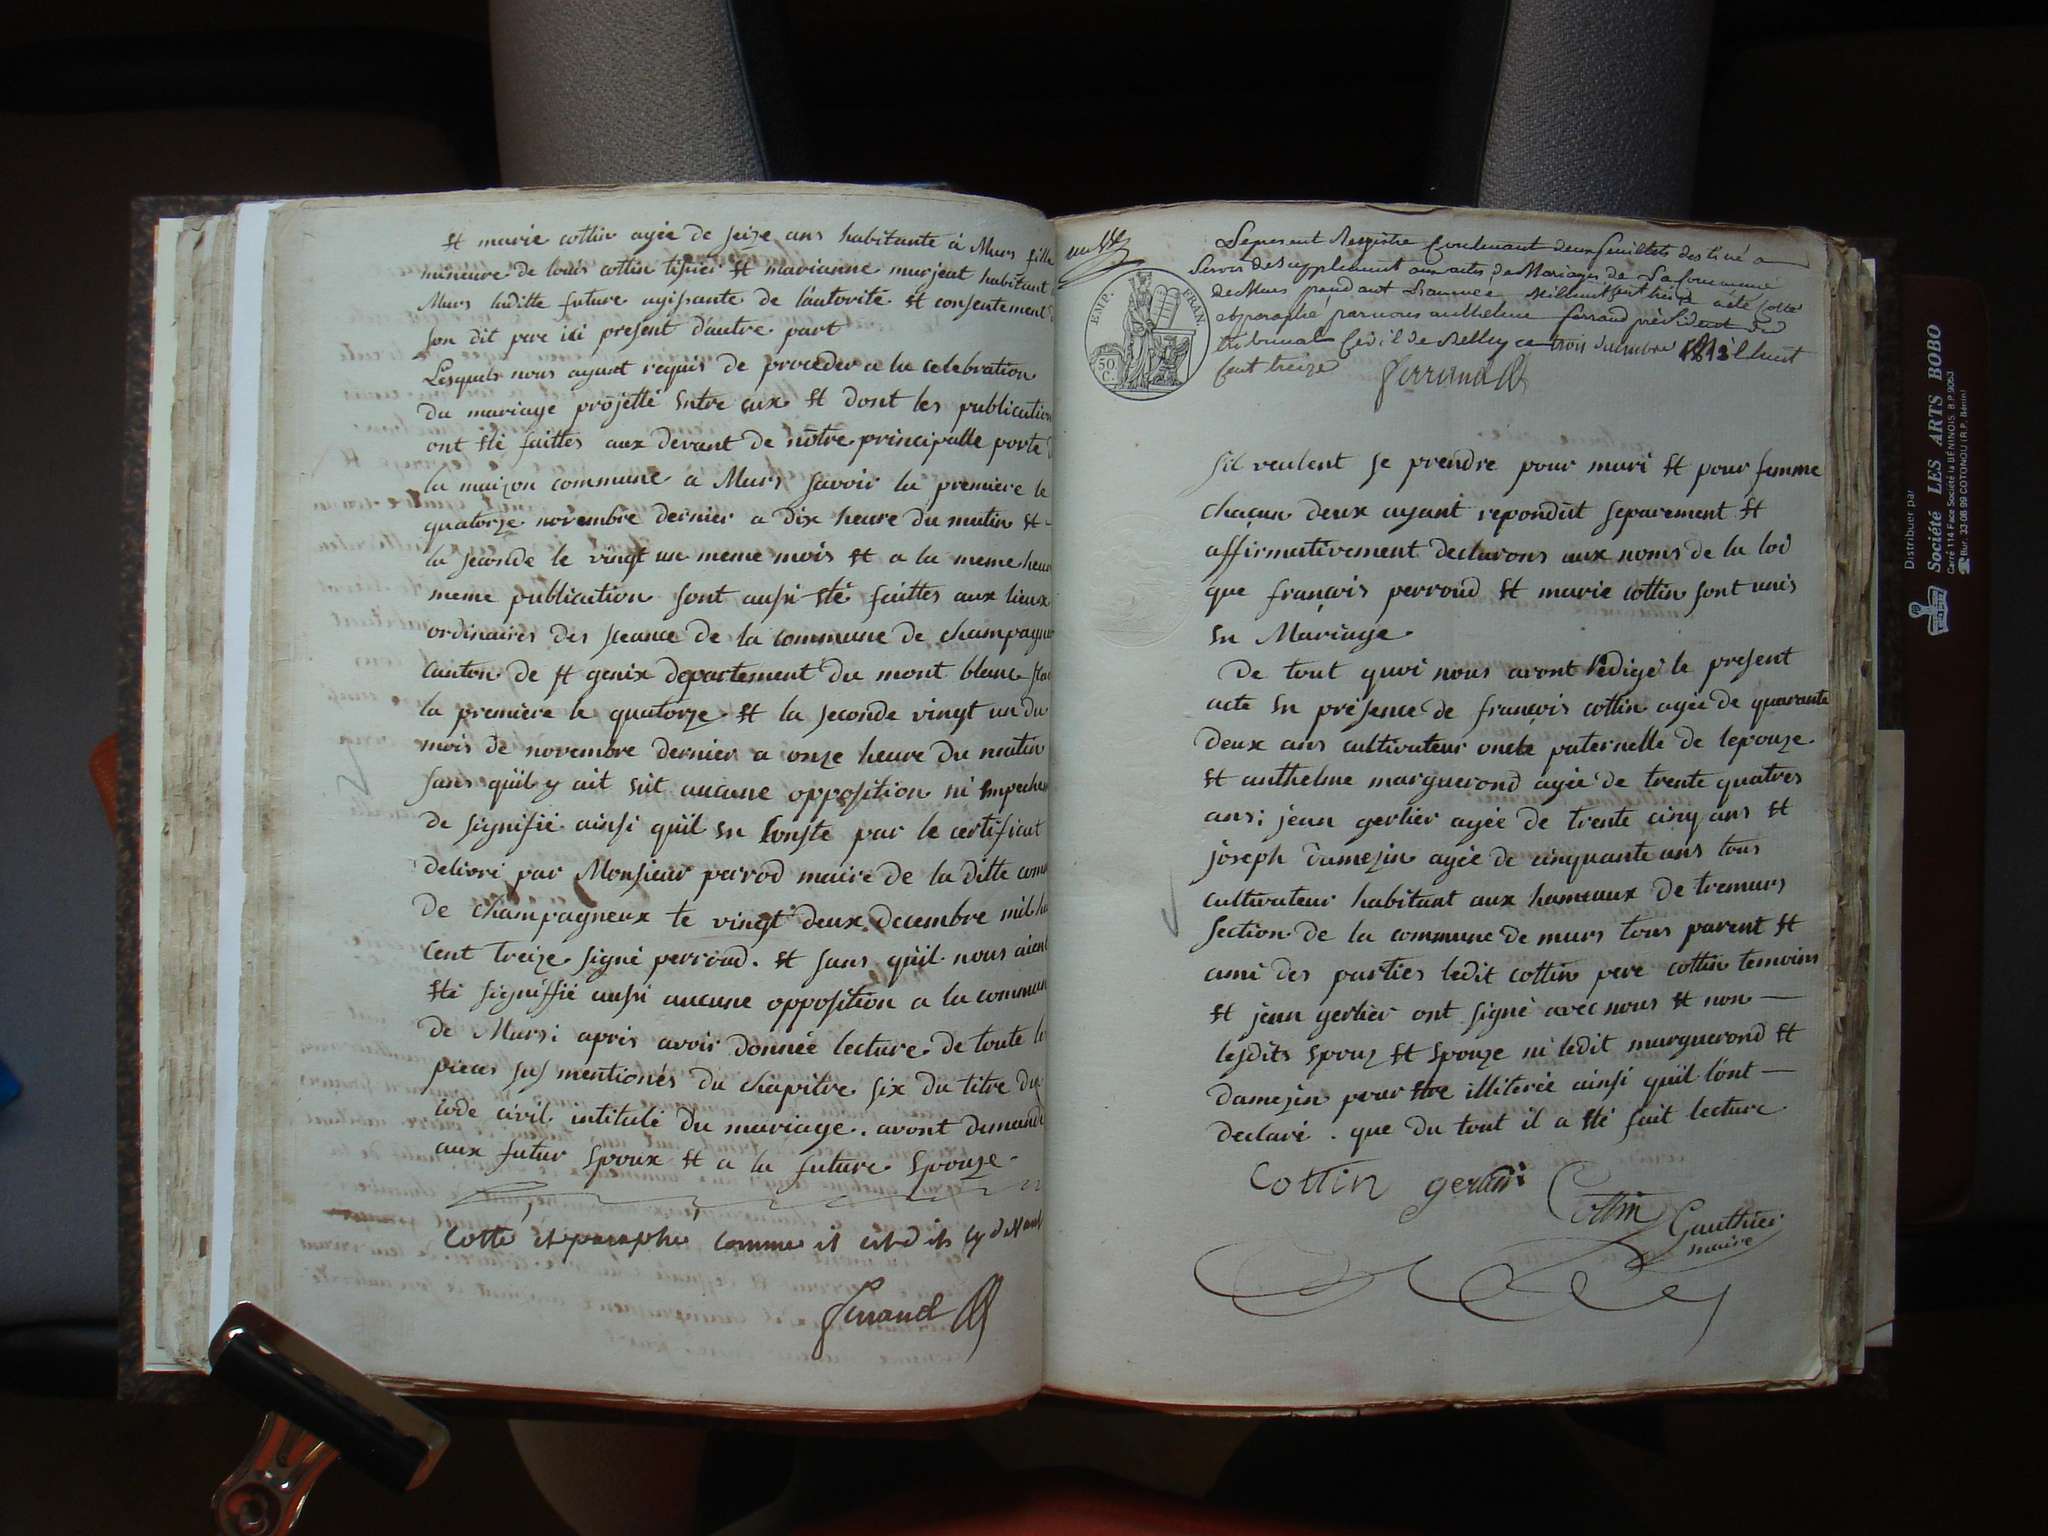 et marie cottin agée de seize ans habitante à Murs fille
mineure de louis cottin tisier et marianne murjeat habitant
Murs laditte future agissante de lautorité et consentement d
son dit pere ici present d'autre part
Lesquels nous ayant requis de proceder a la celebration
du mariage projetté entre eux et dont les publication
ont été faittes aux devant de nôtre principalle porte d
la maizon commune a Murs savoir la premiere le
quatorze novembre dernier a dix heure du matin et
la seconde le vingt un meme mois et a la meme heur
meme publication sont aussi été faittes aux lieux
ordinaires des sceance de la commune de champagneu
canton de st genix departement du mont blanc
la premiere le quatorze et la seconde vingt un du
mois de novembre dernier a onze heure du matin
sans quil y ait eut aucune opposition ni empeche
de signifié ainsi quil en conste par le certificat
delivré par Monsieur perrod maire de la ditte com
de champagneux le vingt deux decembre mil hu
cent treize signé perroud. et sans quil nous aient
été signiffié aussi aucune opposition a la commun
de Murs; apris avoir donnée lecture de toute le
pieces sus mentionés du chapitre six du titre du
code civil intitulé du mariage. avont demandé
aux futur epoux et a la future epouze.
Cotté et paraphé comme il est dit cy devant
Ferrand
EMP. FRAN.
50 C.
Lepresent Registre Contenant deux feuillets destiné a
Servir de Supplement aux actes de Mariages de La Commune
de Murs pendant Lannée Milhuit cent treize a été Cotté
et paraphé par nous anthelme ferrand président du
tribunal Civil de Belley ce trois decembre 1813 il huit
Cent treize Ferrand
sil veulent se prendre pour mari et pour femme
chacun deux ayant repondüt separement et
affirmativement declarons aux noms de la loi
que françois perroud et marie cottin sont unis
en Mariage.
De tout quoi nous avont rédigé le present
acte en présence de françois cottin agée de quarante
deux ans cultivateur oncle paternelle de lepouze
et anthelme marguerond agée de trente quatres
ans; jean gerlier agée de trente cinq ans et
joseph damezin agée de cinquante ans tous
cultivateur habitant aux hameaux de tremurs
section de la commune de murs tous parent et
ami des parties ledit cottin pere cottin temoins
et jean gerlier ont signé avec nous et non —
lesdits epoux et epouze ni ledit marguerond et
damezin pour etre illiterée ainsi quil lont —
declaré. que du tout il a été fait lecture
Cottin gerlier Cottin
Gauthier
maire
Distribuer par
Société LES ARTS BOBO
Carré 114 Face Société la BÉNINOIS. B.P. 9053
Bur. 33-06-99 COTONOU (R.P. Bénin)